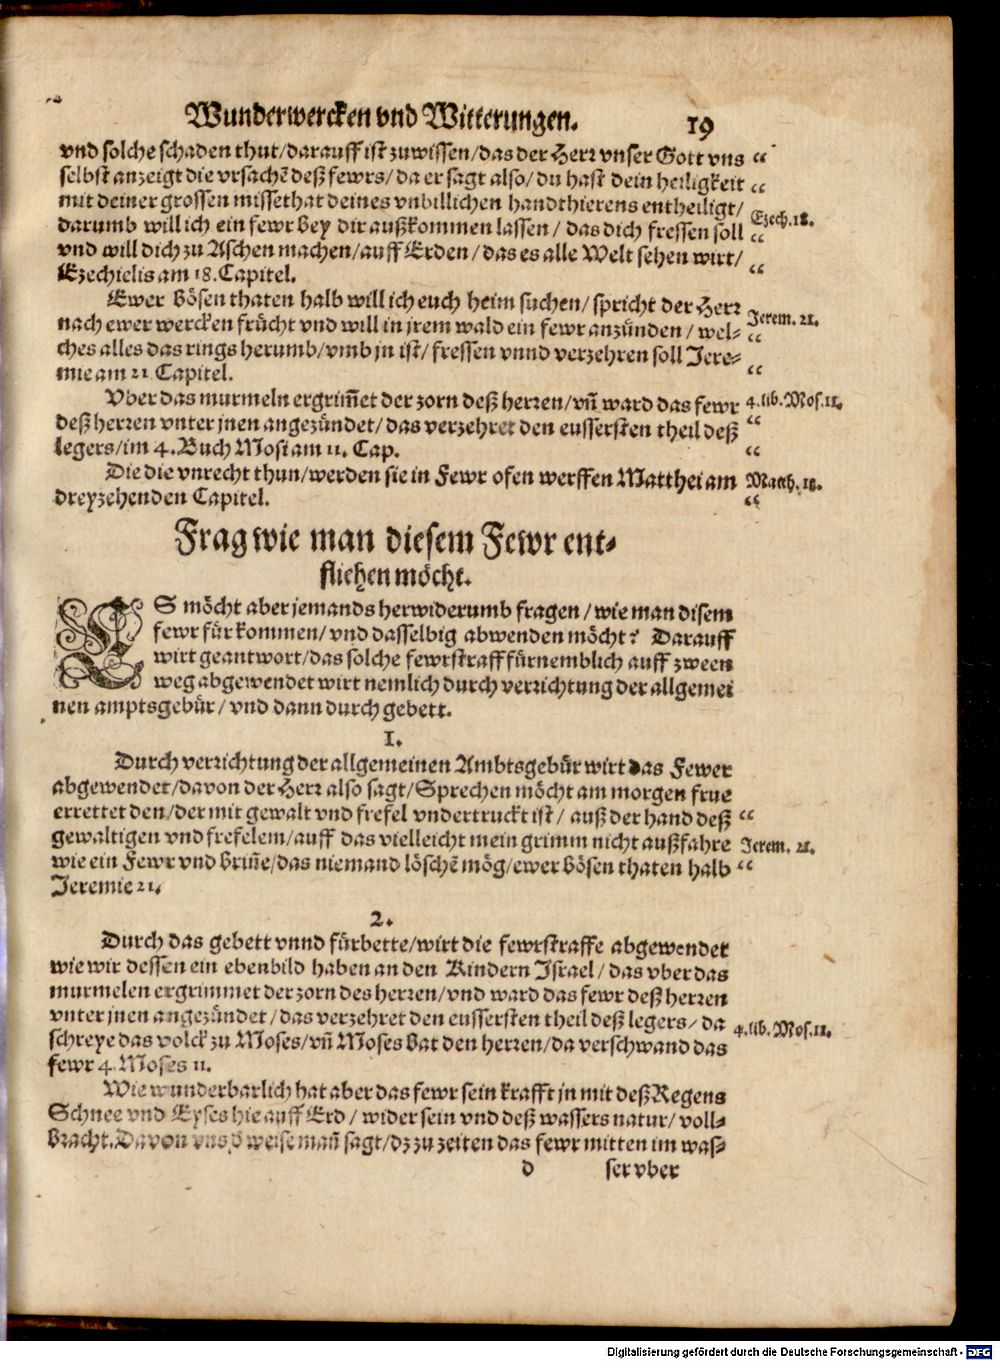 Wunderwercken vnd Witterungen. 19
vnd solche schaden thut/darauff ist zuwissen/das der Herr vnser Gott vns “
selbst anzeigt die vrsachē deß fewrs/da er sagt also/du hast dein heiligkeit “
mit deiner grossen missethat deines vnbillichen handthierens entheiligt/
darumb will ich ein fewr bey dir außkommen lassen/ das dich fressen soll Ezech. 18. “
vnd will dich zu Aschen machen/auff Erden/das es alle Welt sehen wirt/
Ezechielis am 18. Capitel. “
Ewer bösen thaten halb will ich euch heim suchen/spricht der Herr
nach ewer wercken frücht vnd will in jrem wald ein fewr anzünden/wel- Jerem. 21. “
ches alles das rings herumb/vmb jn ist/fressen vnnd verzehren soll Jere-
mie am 21 Capitel. “
Vber das murmeln ergrim̄et der zorn deß herren/vn̄ ward das fewr 4. lib. Mos. 11.
deß herren vnter jnen angezündet/das verzehret den eussersten theil deß “
legers/im 4. Buch Mosi am 11. Cap. “
Die die vnrecht thun/werden sie in Fewr ofen werffen Matthei am Matth. 13.
dreyzehenden Capitel. “
Frag wie man diesem Fewr ent-
fliehen möcht.
ES möcht aber jemands herwiderumb fragen/wie man disem
fewr fürkommen/vnd dasselbig abwenden möcht? Darauff
wirt geantwort/das solche fewrstraff fürnemblich auff zween
weg abgewendet wirt nemlich durch verrichtung der allgemei
nen amptsgebür/vnd dann durch gebett.
1.
Durch verrichtung der allgemeinen Ambtsgebür wirt das Fewer
abgewendet/davon der Herr also sagt/Sprechen möcht am morgen frue
errettet den/der mit gewalt vnd frefel vndertruckt ist/ auß der hand deß “
gewaltigen vnd frefelem/auff das vielleicht mein grimm nicht außfahre Jerem. 21.
wie ein Fewr vnd brin̄e/das niemand löschē mög/ewer bösen thaten halb “
Jeremie 21.
2.
Durch das gebett vnnd fürbette/wirt die fewrstraffe abgewendet
wie wir dessen ein ebenbild haben an den Kindern Israel/das vber das
murmelen ergrimmet der zorn des herren/vnd ward das fewr deß herren
vnter jnen angezündet/das verzehret den eussersten theil deß legers/da 4. lib. Mos. 11.
schreye das volck zu Moses/vn̄ Moses bat den herren/da verschwand das
fewr 4. Moses 11.
Wie wunderbarlich hat aber das fewr sein krafft jn mit deß Regens
Schnee vnd Eyses hie auff Erd/ wider sein vnd deß wassers natur/ voll-
bracht. Davon vns d weise man̄ sagt/dz zu zeiten das fewr mitten im was-
d ser vber
Digitalisierung gefördert durch die Deutsche Forschungsgemeinschaft - DFG